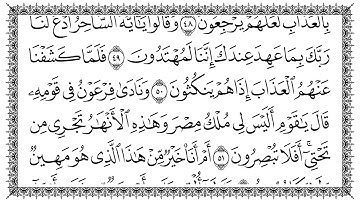 بِالْعَذَابِ لَعَلَّهُمْ يَرْجِعُونَ ٤٨ وَقَالُوا يَٰٓأَيُّهَ السَّاحِرُ ادْعُ لَنَا
رَبَّكَ بِمَا عَهِدَ عِندَكَ إِنَّنَا لَمُهْتَدُونَ ٤٩ فَلَمَّا كَشَفْنَا
عَنْهُمُ الْعَذَابَ إِذَا هُمْ يَنكُثُونَ ٥٠ وَنَادَىٰ فِرْعَوْنُ فِي قَوْمِهِ
قَالَ يَٰقَوْمِ أَلَيْسَ لِي مُلْكُ مِصْرَ وَهَٰذِهِ الْأَنْهَارُ تَجْرِي مِن
تَحْتِي أَفَلَا تُبْصِرُونَ ٥١ أَمْ أَنَا خَيْرٌ مِّنْ هَٰذَا الَّذِي هُوَ مَهِينٌ